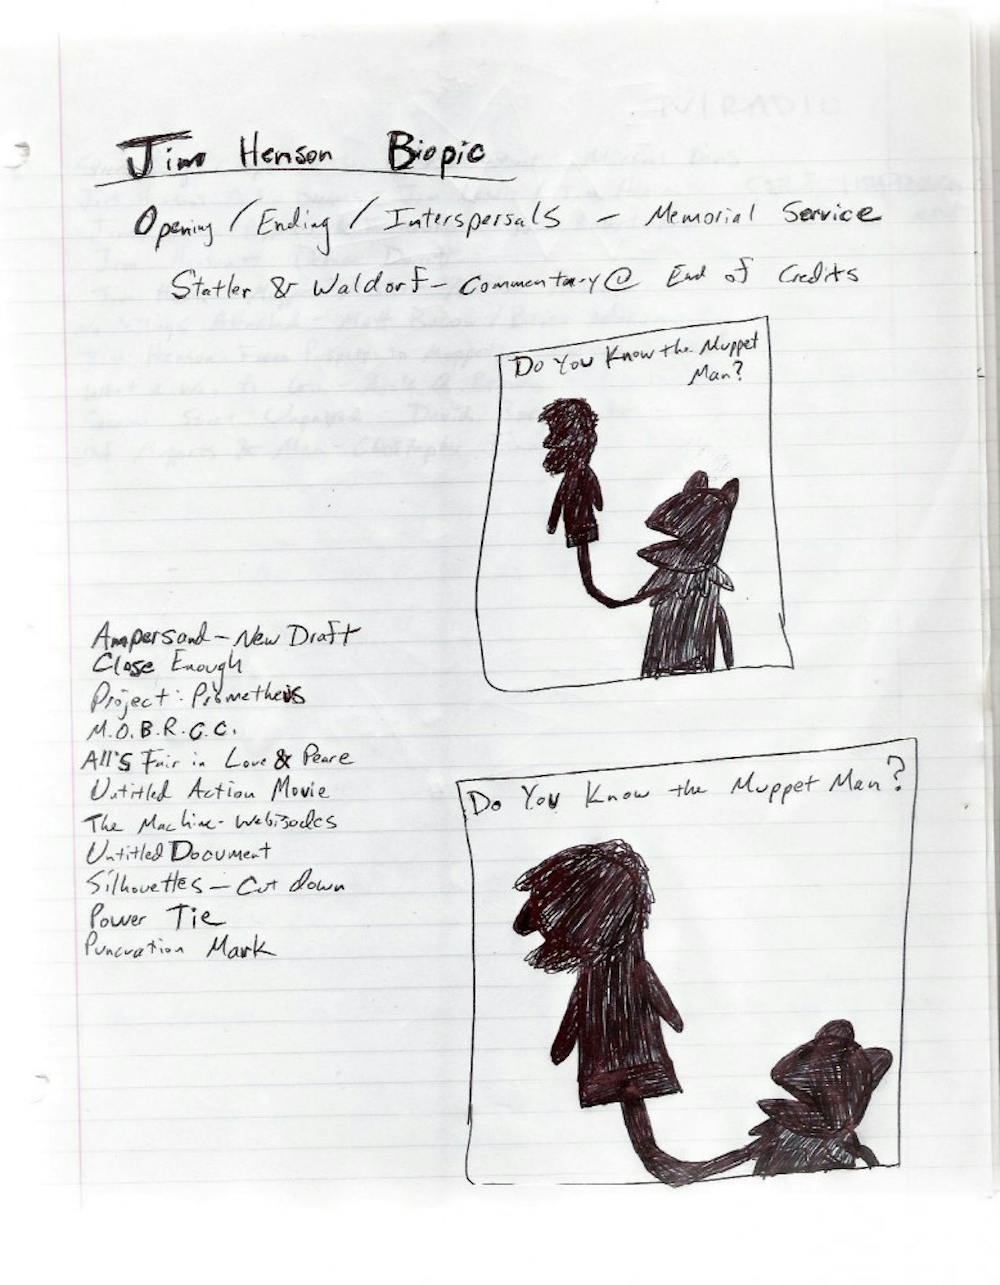 Jim Henson Biopic
Opening / Ending / Interspersals – Memorial Service
Statler & Waldorf – Commentary @ End of Credits
Do You Know the Muppet
Man?
Ampersand – New Draft
Close Enough
Project: Prometheus
M.O.B.R.G.C.
All's Fair in Love & Peace
Untitled Action Movie
The Machine - Webisodes
Untitled Document
Silhouettes – Cut down
Power Tie
Puncuation Mark
Do You Know the Muppet Man?
TV/RADIO